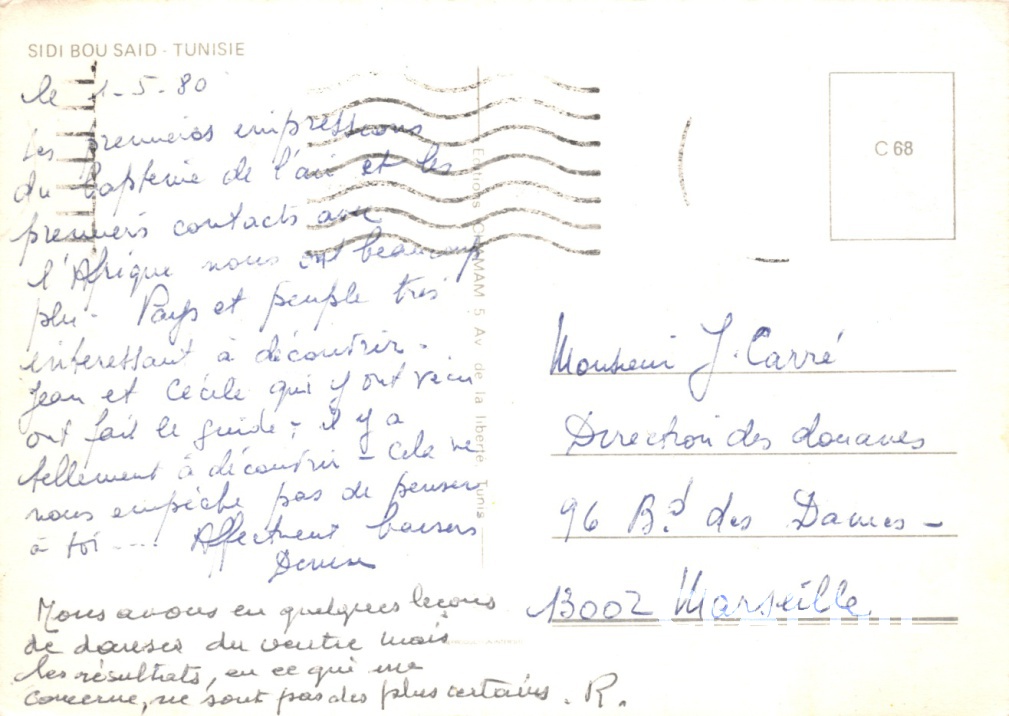 SIDI BOU SAID - TUNISIE
le 1-5-80
Les premières impressions
du baptême de l'air et les
premiers contacts avec
l'Afrique nous ont beaucoup
plu. Pays et peuple très
interessant à découvrir.
Jean et Cécile qui y ont vécu
ont fait le guide; il y a
tellement à découvrir - Cela ne
nous empêche pas de penser
à toi .... Affectueux baisers
Denise
Nous avons eu quelques leçons
de danses du ventre mais
les résultats, en ce qui me
concerne, ne sont pas des plus certains. R.
Editions 5 Av de la liberte Tunis
C 68
Monsieur J. Carré
Direction des douanes
96 Bd des Dames -
13002 Marseille